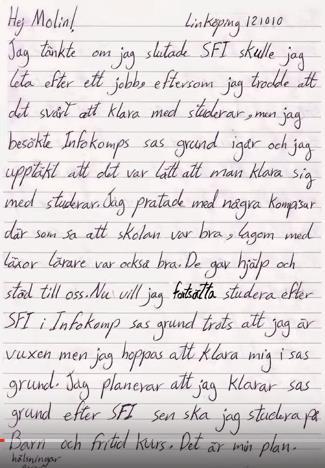 Hej Molin! Linköping 121010
Jag tänkte om jag slutade SFI skulle jag
leta efter ett jobb, eftersom jag trodde att
det svårt att klara med studerar, men jag
besökte Infokomps sas grund igår och jag
upptäkt att det var lätt att man klara sig
med studerar. Jag pratade med några kompisar
där som sa att skolan var bra, lagom med
läxor lärare var också bra. De gav hjälp och
stöd till oss. Nu vill jag fortsätta studera efter
SFI i InfoKomp sas grund trots att jag är
vuxen men jag hoppas att klara mig i sas
grund. Jag planerar att jag klarar sas
grund efter SFI sen ska jag studera på
Barn och fritid kurs. Det är min plan.
hälsningar